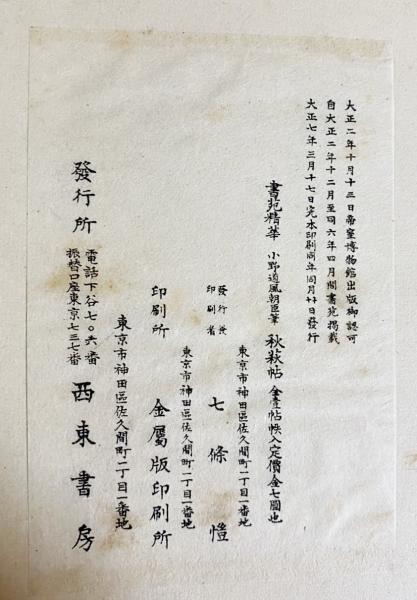 大正二年十月十三日帝室博物館出版御認可
自大正二年十二月至同六年四月間書苑掲載
大正七年三月十七日完本印刷同年同月廿日發行
書苑精華 小野道風朝臣筆 秋萩帖 全壹帖帙入定價金七圓也
東京市神田區佐久間町二丁目一番地
發行兼
印刷者 七條愷
東京市神田區佐久間町二丁目一番地
印刷所 金屬版印刷所
東京市神田區佐久間町二丁目一番地
發行所 電話下谷七〇六番
振替口座東京七三七番 西東書房